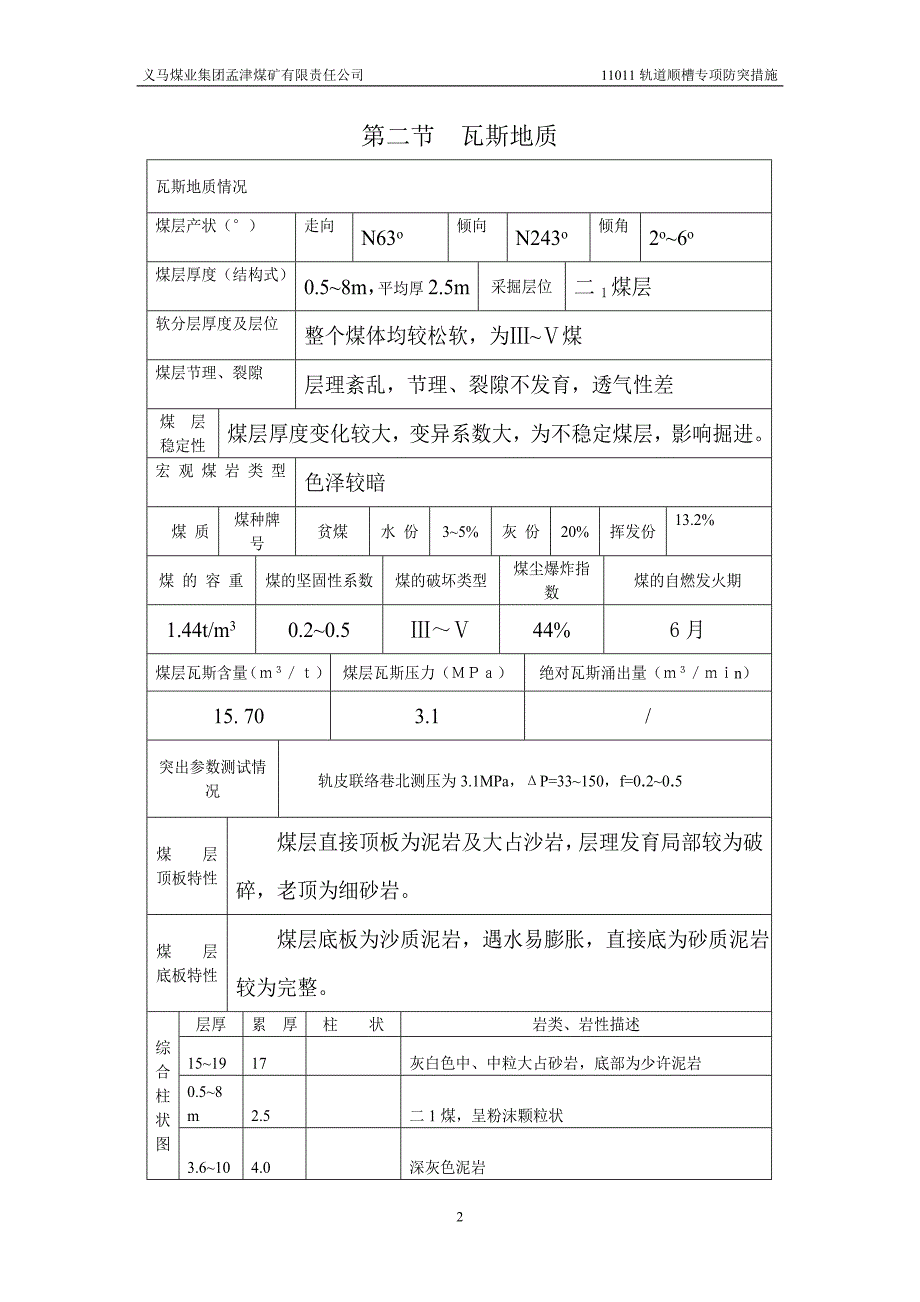 义马煤业集团孟津煤矿有限责任公司 11011 轨道顺槽专项防突措施
第二节 瓦斯地质
瓦斯地质情况
煤层产状(°) 走向 N63º 倾向 N243º 倾角 2º~6º
煤层厚度(结构式) 0.5~8m,平均厚 2.5m 采掘层位 二₁煤层
软分层厚度及层位 整个煤体均较松软,为Ⅲ~Ⅴ煤
煤层节理、裂隙 层理紊乱,节理、裂隙不发育,透气性差
煤 层
稳定性
煤层厚度变化较大,变异系数大,为不稳定煤层,影响掘进。
宏 观 煤 岩 类 型 色泽较暗
煤 质 煤种牌
号
贫煤 水 份 3~5% 灰 份 20% 挥发份 13.2%
煤 的 容 重 煤的坚固性系数 煤的破坏类型 煤尘爆炸指
数
煤的自燃发火期
1.44t/m³ 0.2~0.5 Ⅲ～Ⅴ 44% 6 月
煤层瓦斯含量(m³/t) 煤层瓦斯压力(MPa) 绝对瓦斯涌出量(m³/min)
15.70 3.1 /
突出参数测试情
况
轨皮联络巷北测压为 3.1MPa, ΔP=33~150, f=0.2~0.5
煤 层
顶板特性
煤层直接顶板为泥岩及大占沙岩,层理发育局部较为破
碎,老顶为细砂岩。
煤 层
底板特性
煤层底板为沙质泥岩,遇水易膨胀,直接底为砂质泥岩
较为完整。
综
合
柱
状
图
层厚 累 厚 柱 状 岩类、岩性描述
15~19 17 灰白色中、中粒大占砂岩,底部为少许泥岩
0.5~8
m
2.5 二 1 煤,呈粉沫颗粒状
3.6~10 4.0 深灰色泥岩
2